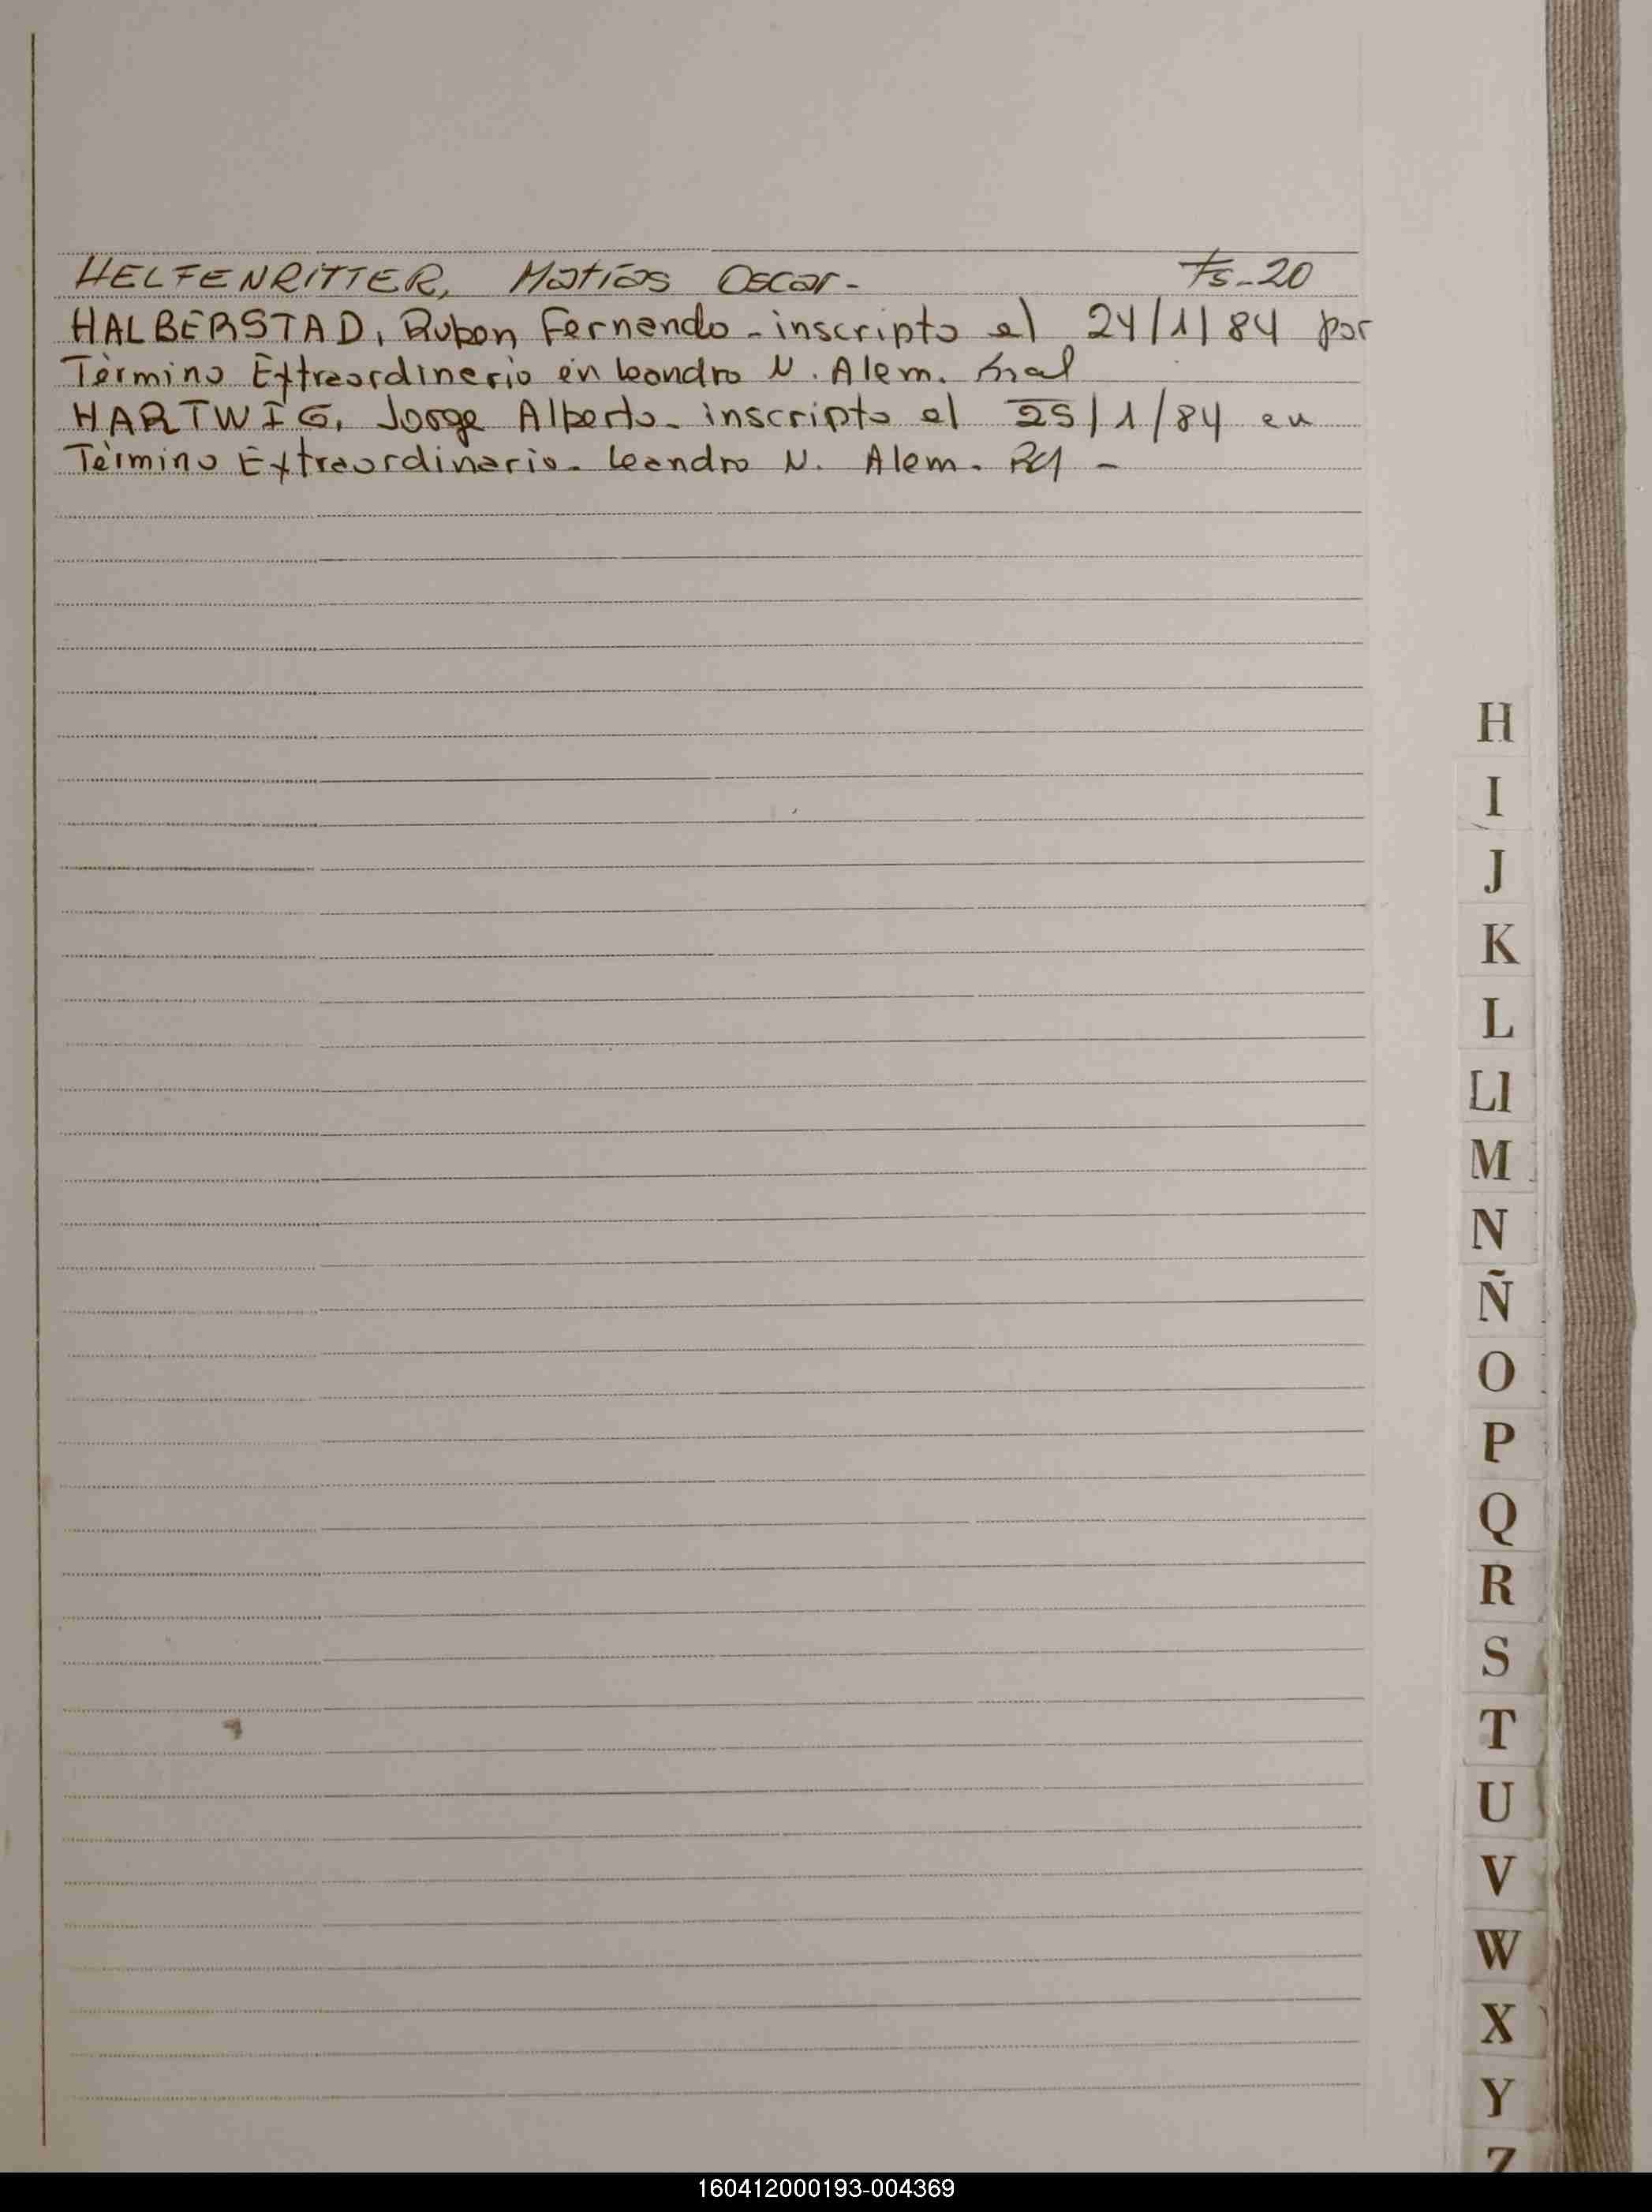 HELFENRITTER, Matías Oscar- Fs-20
HALBERSTAD, Ruben Fernando-inscripto el 24/1/84 por
Tèrmino Extraordinario en Leandro N. Alem.
HARTWIG, Jorge Alberto- inscripto el 25/1/84 en
Tèrmino Extraordinario- Leandro N. Alem-
H
I
J
K
L
Ll
M
N
Ñ
O
P
Q
R
S
T
U
V
W
X
Y
Z
160412000193-004369